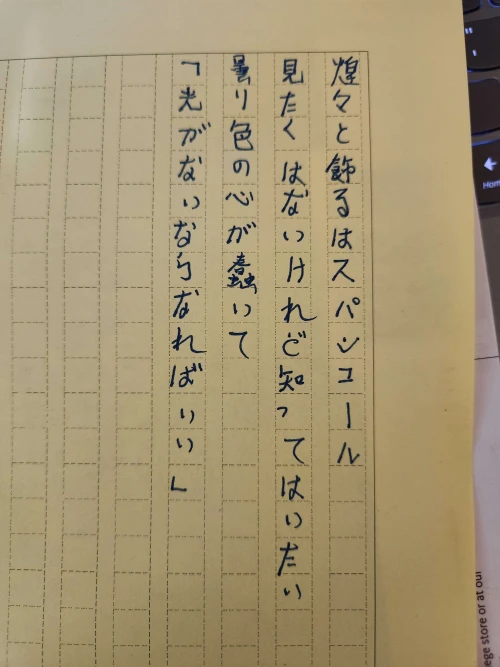 煌々と飾るはスパンコール
見たくはないけれど知ってはいたい
曇り色の心が蠢いて
「光がないならなればいい」
Home
ege store or at our